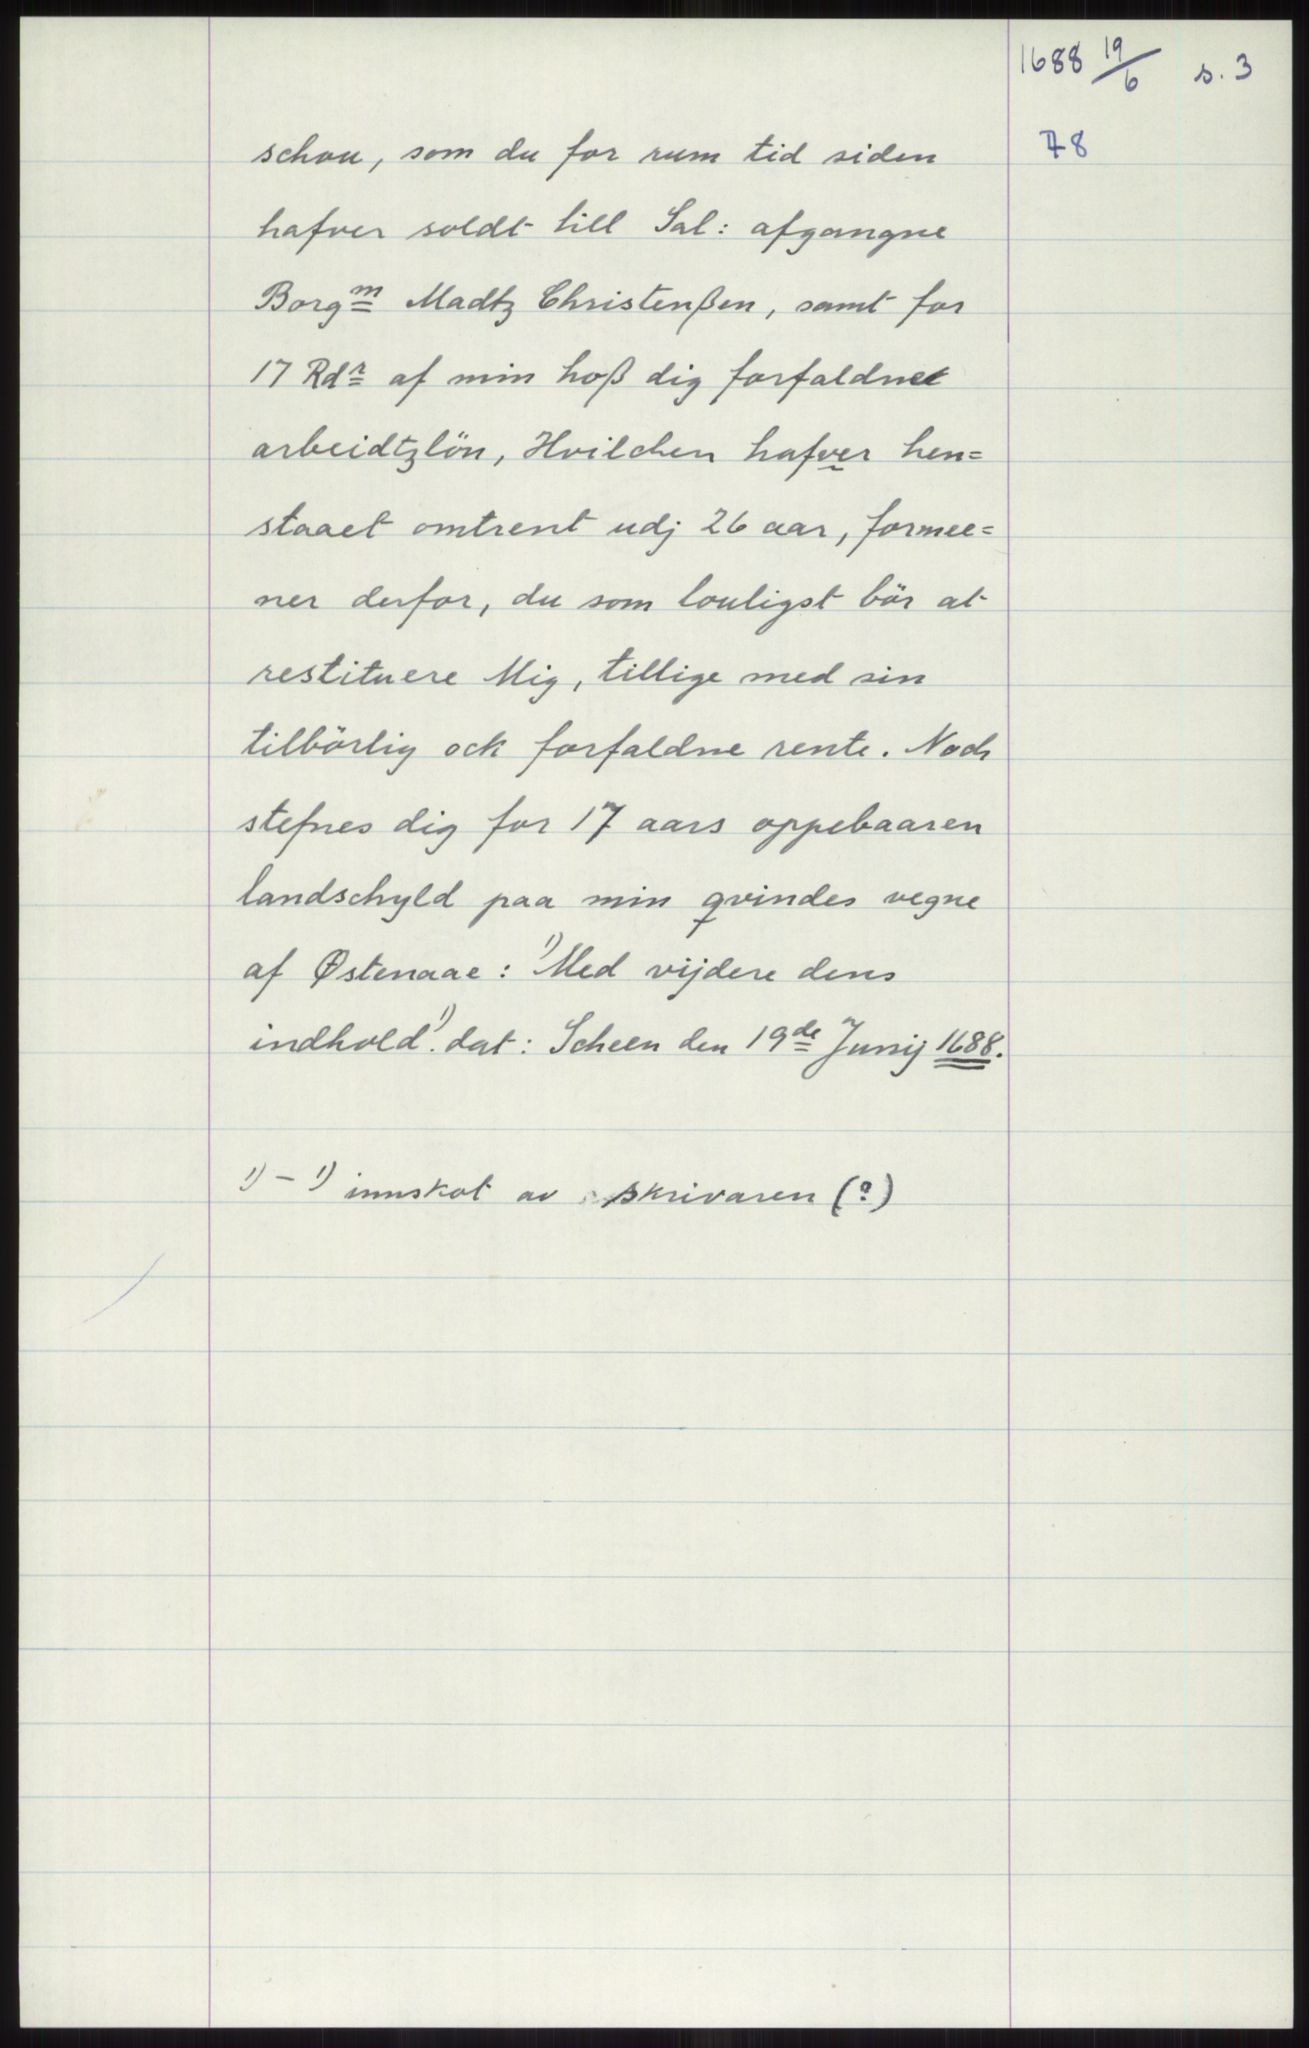 1688 19/6 s. 3
78
schou, som du for rum tid siden
hafver soldt till Sal: afgangne
Borgm Madtz Christenßen, samt for
17 Rdr af min hoß dig forfaldnet
arbeidtzlön, Hvilchen hafver hen=
staaet omtrent udj 26 aar, formee=
ner derfor, du som louligst bör at
restituere Mig, tillige med sin
tilbörlig ock forfaldne rente. Noch
stefnes dig for 17 aars oppebaaren
landschyld paa min qvindes vegne
af Østenaae: 1) Med vijdere dens
indhold 1). dat: Scheen den 19de Junij 1688.
1) - 1) innskot av skrivaren (?)